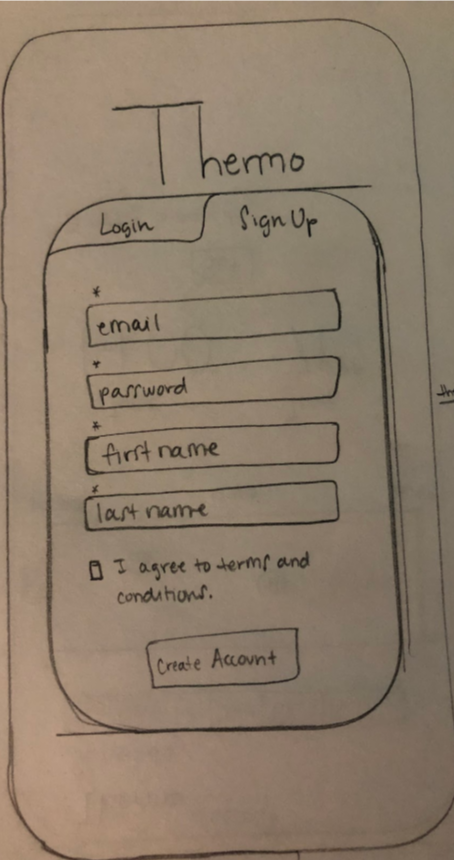 Thermo
Login
Sign Up
*
email
*
password
*
first name
*
last name
I agree to terms and
conditions.
Create Account